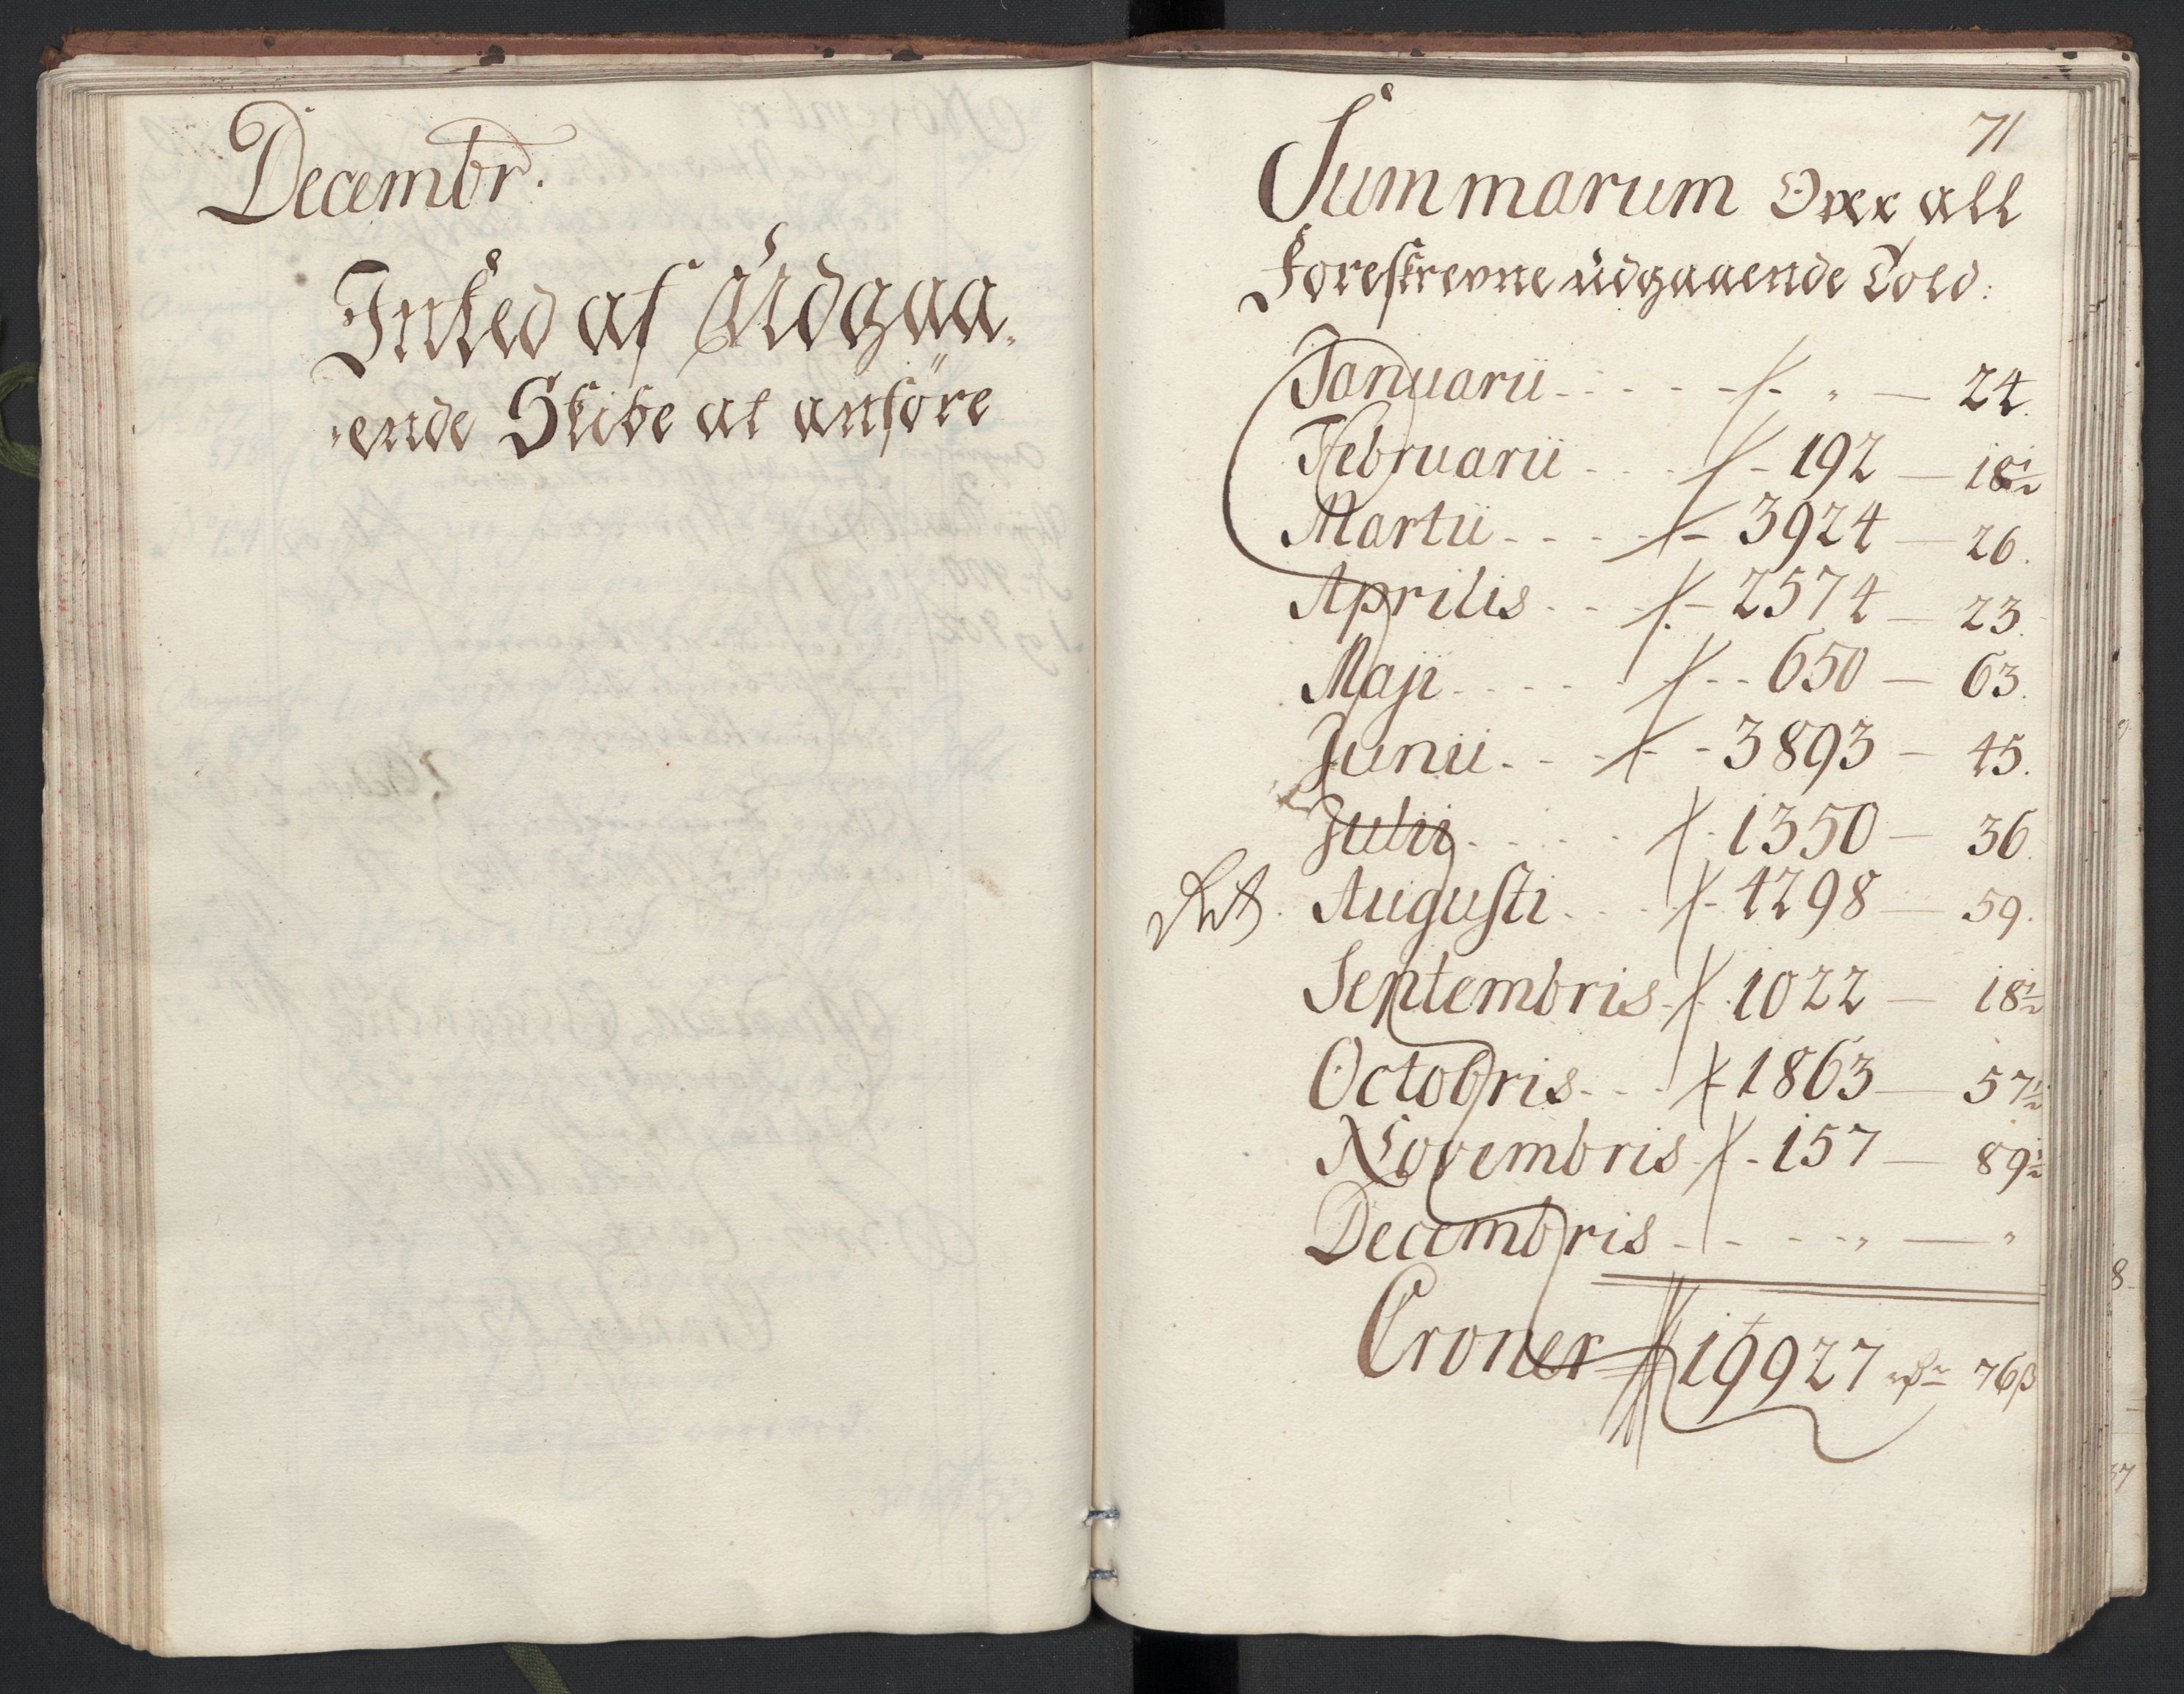 Decembr.
Intked af Udgaa-
-ende Skibe at anföre
71
Summarum Over all
Foreskrevne udgaaende Told:
Januarii - - - - - " — 24.
Februarii - - - - 192 — 18½
Martii - - - - 3924 — 26.
Aprilis - - - 2574 — 23.
Maji - - - - - - 650 — 63.
Junii - - - - 3893 — 45.
Julii - - - - - 1350 — 36.
Augusti - - - - 4298 — 59.
Septembris - - 1022 — 18½
Octobris - - - 1863 — 57½
Novembris - - 157 — 89½
Decembris - - - - - " — "
Croner 19927 76ß